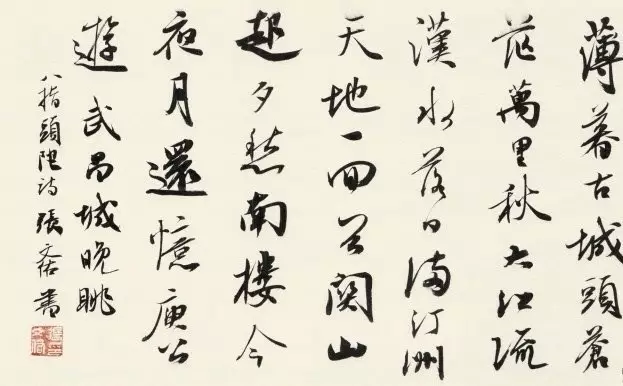 薄暮古城頭蒼
茫萬里秋大江流
漢水落日滿汀洲
天地一回首關山
起夕愁南樓今
夜月還憶庾公
遊 武昌城晚眺
八指頭陀詩 張文書